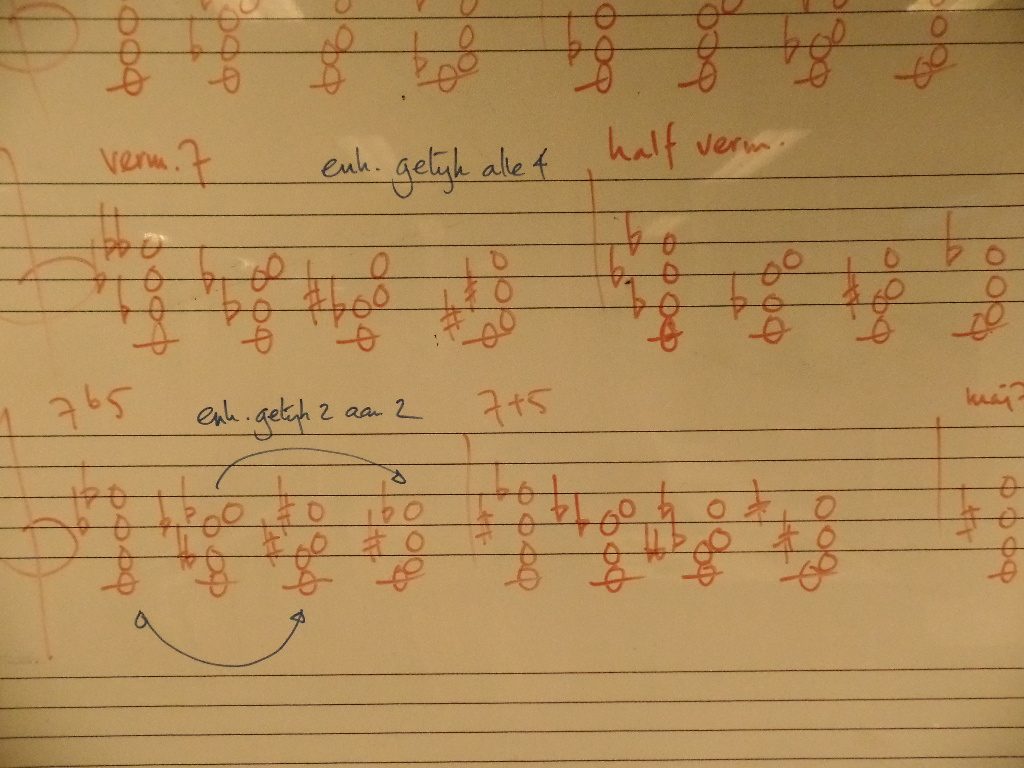 verm. 7 enh. gelijk alle 4 half verm.
7 b5 enh. gelijk 2 aan 2 7+5 maj7